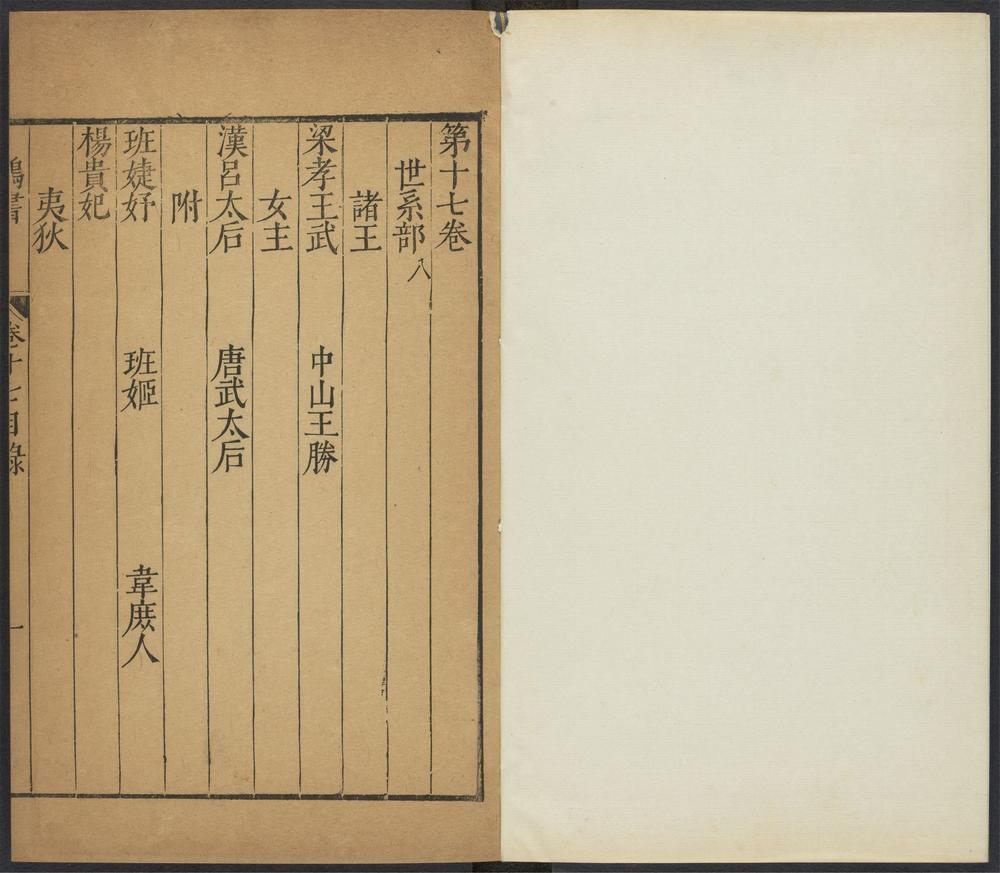 第十七卷
世系部八
諸王
梁孝王武 中山王勝
女主
漢呂太后 唐武太后
附
班婕妤 班姬 韋庶人
楊貴妃
夷狄
書
卷十七目錄
一